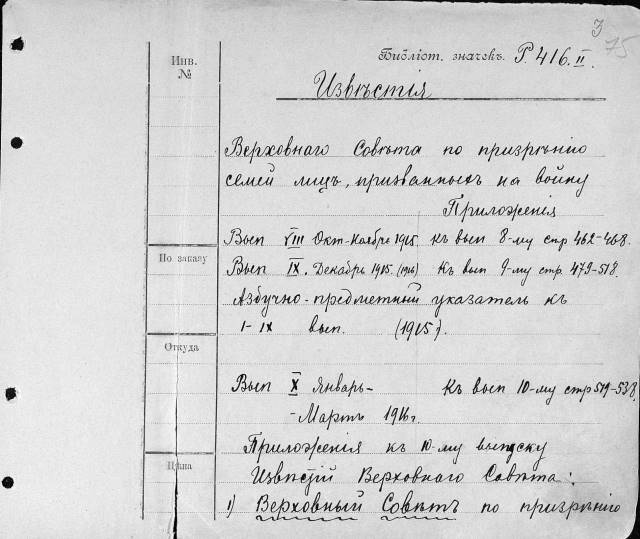 З
75
Инв.
№
Библіот. значекъ. Р.416.II.
Извѣстія
Верховнаго Совѣта по призрѣнію
семей лицъ, призванныхъ на войну
Приложенія
Вып VIII Окт-Ноябрь 1915 къ вып 8-му стр 462-468.
По заказу
Вып IX. Декабрь 1915. (1916) къ вып 9-му стр. 479-518.
Азбучно-предметный указатель къ
I-IX вып. (1915).
Откуда
Вып X Январь- къ вып 10-му стр 519-538.
-Мартъ 1916 г.
Приложенія къ 10-му выпуску
Цѣна
Извѣстій Верховнаго Совѣта:
1) Верховный Совѣтъ по призрѣнію